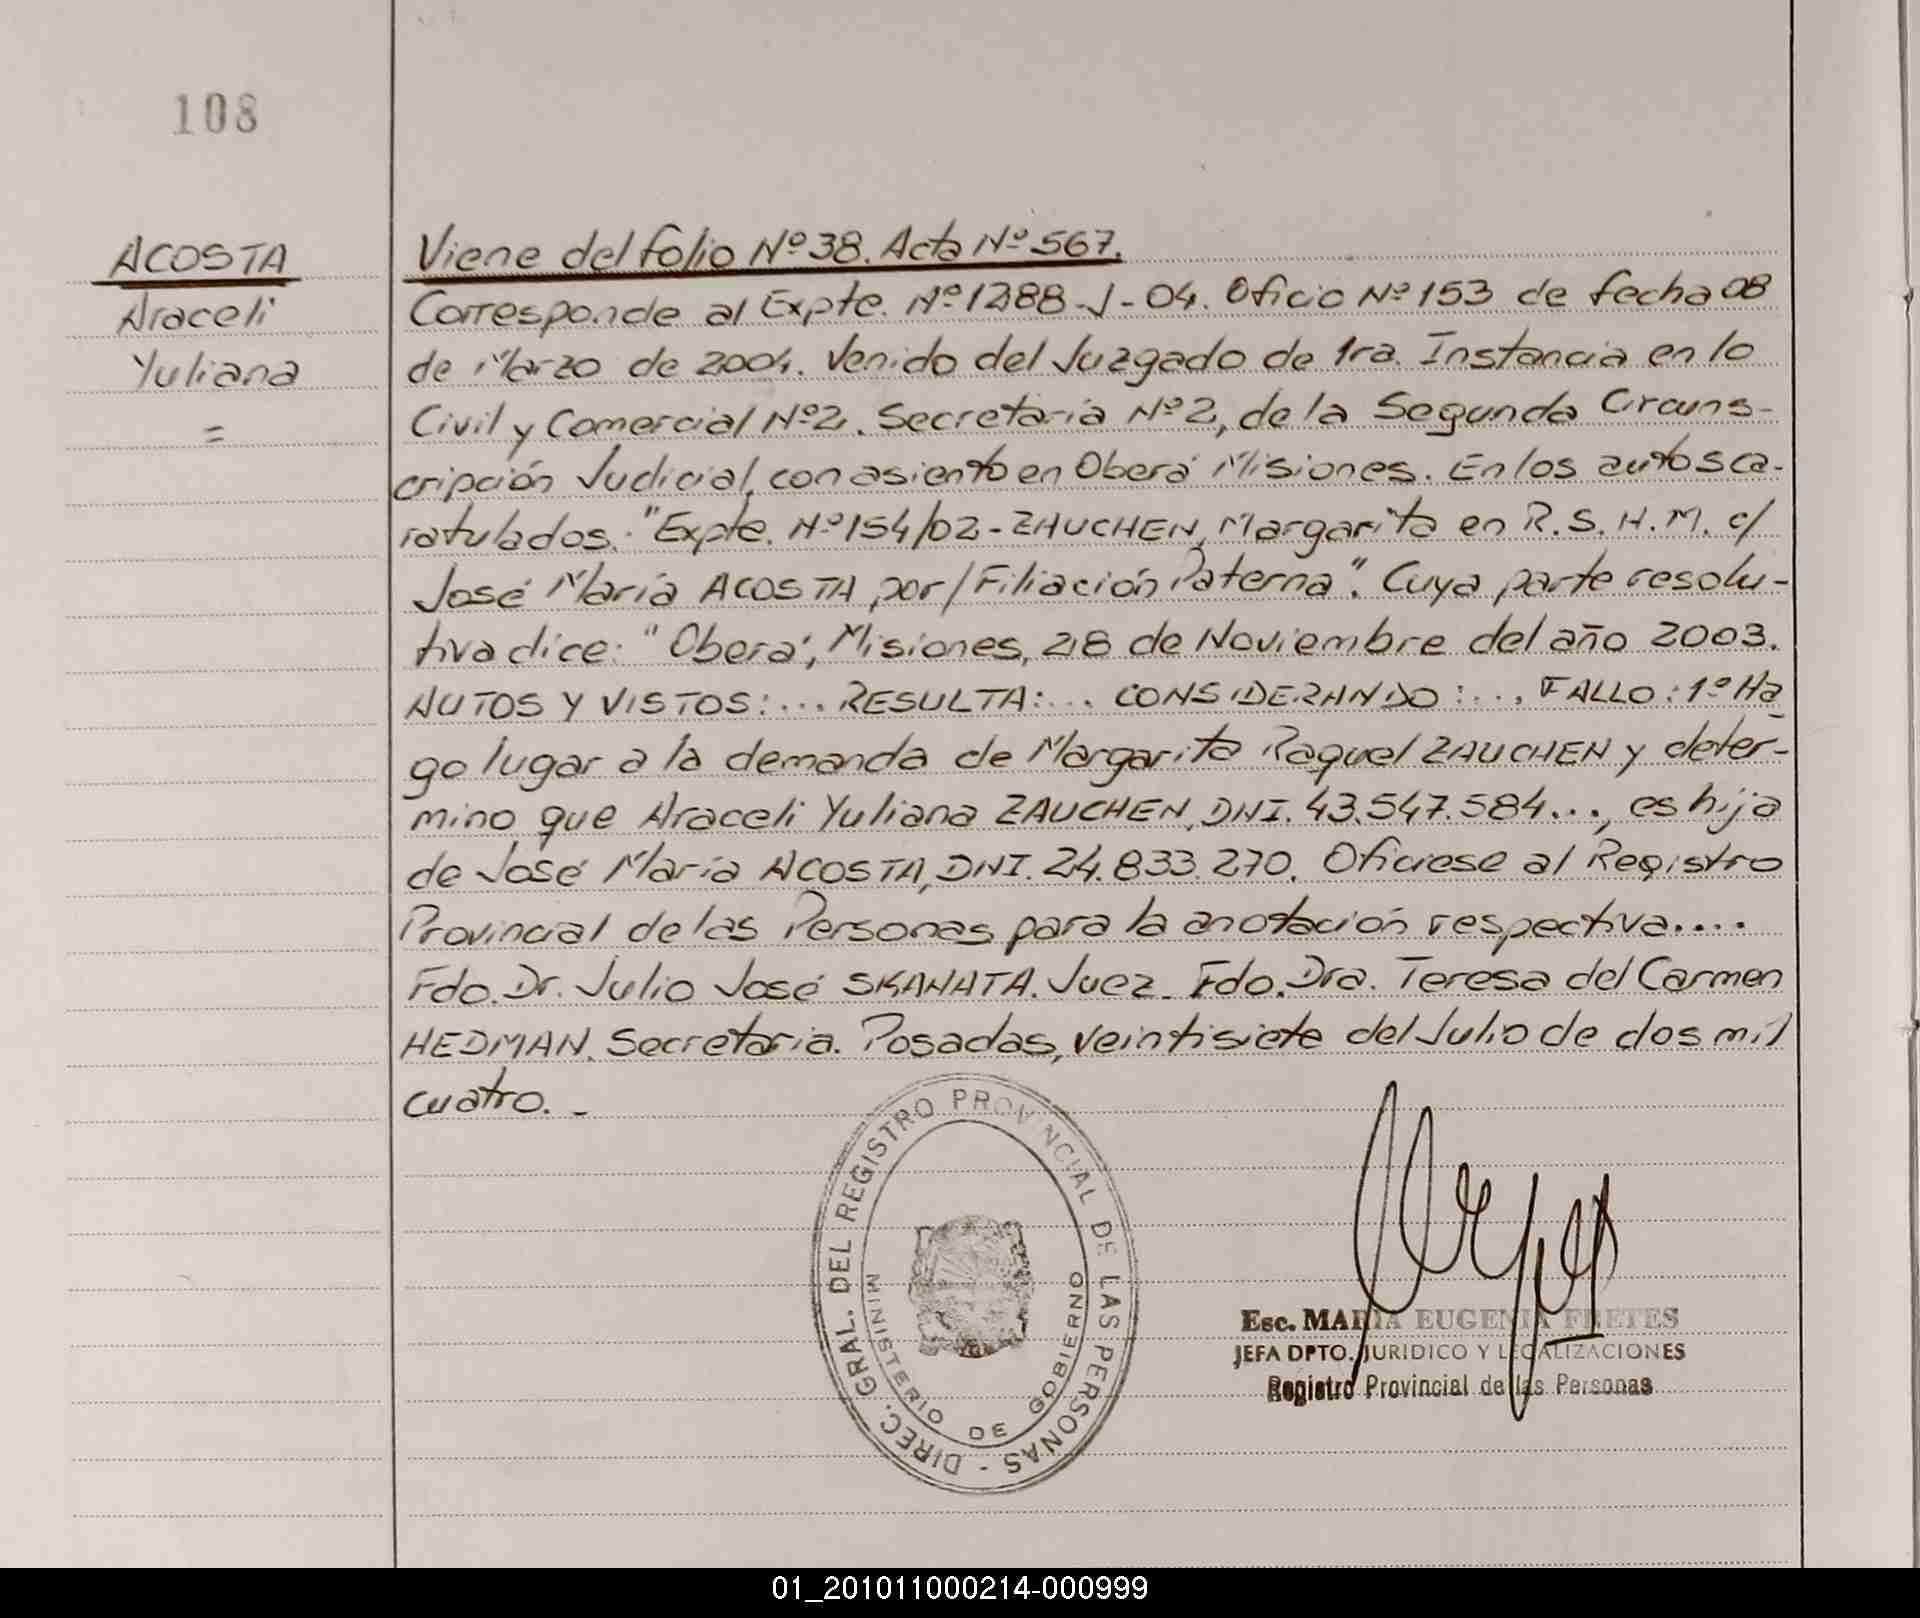 108
ACOSTA
Araceli
Yuliana
=
Viene del folio Nº 38. Acta Nº 567.
Corresponde al Expte. Nº 1288-J-04. Oficio Nº 153 de fecha 08
de Marzo de 2004. Venido del Juzgado de 1ra. Instancia en lo
Civil y Comercial Nº 2. Secretaría Nº 2, de la Segunda Circuns-
cripción Judicial, con asiento en Oberá Misiones. En los autos ca-
ratulados: "Expte. Nº 154/02 - ZAUCHEN, Margarita en R.S.H.M. c/
José María ACOSTA por/Filiación Paterna". Cuya parte resolu-
tiva dice: "Oberá, Misiones, 28 de Noviembre del año 2003.
AUTOS Y VISTOS:... RESULTA:... CONSIDERANDO:..., FALLO: 1º Ha-
go lugar a la demanda de Margarita Raquel ZAUCHEN y deter-
mino que Araceli Yuliana ZAUCHEN, DNI. 43.547.584..., es hija
de José María ACOSTA, DNI. 24.833.270. Ofíciese al Registro
Provincial de las Personas para la anotación respectiva....
Fdo. Dr. Julio José SKANATA. Juez. Fdo. Dra. Teresa del Carmen
HEDMAN. Secretaria. Posadas, veintisiete del Julio de dos mil
cuatro.-
DIREC. GRAL. DEL REGISTRO PROVINCIAL DE LAS PERSONAS -
MINISTERIO DE GOBIERNO
Esc. MARIA EUGENIA FRETES
JEFA DPTO. JURIDICO Y LEGALIZACIONES
Registro Provincial de las Personas
01_201011000214-000999